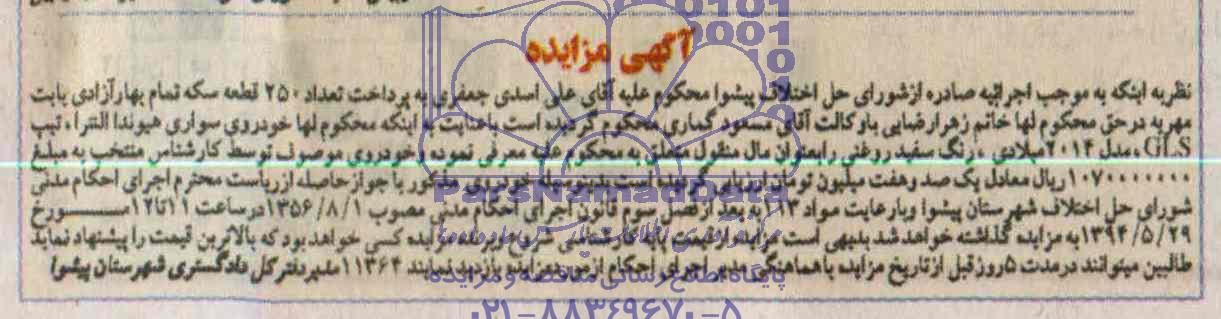 آگهی مزایده
نظر به اینکه به موجب اجرائیه صادره از شورای حل اختلاف پیشوا محکوم علیه آقای علی اسدی جعفری به پرداخت تعداد ۲۵۰ قطعه سکه تمام بهار آزادی بابت
مهریه در حق محکوم لها خانم زهرا رضایی باوکالت آقای مسعود گماری محکوم گردیده است باعنایت به اینکه محکوم لها خودروی سواری هیوندا النترا، تیپ
GLS، مدل ۲۰۱۴میلادی، رنگ سفید روغنی رابعنوان مال منقول متعلق به محکوم علیه معرفی نموده وخودروی موصوف توسط کارشناس منتخب به مبلغ
۱۰۷۰۰۰۰۰۰۰ ریال معادل یک صد وهفت میلیون تومان ارزیابی گردیده است بدینوسیله خودروی مذکور با جواز حاصله ازریاست محترم اجرای احکام مدنی
شورای حل اختلاف شهرستان پیشوا وبارعایت مواد ۱۱۳ به بعد ازفصل سوم قانون اجرای احکام مدنی مصوب ۱۳۵۶/۸/۱درساعت ۱۱تا۱۲مورخ
۱۳۹۴/۵/۲۹به مزایده گذاشته خواهد شد بدیهی است مزایده ازقیمت پایه کارشناسی شروع وبرنده مزایده کسی خواهدبود که بالاترین قیمت را پیشنهاد نماید
طالبین میتوانند درمدت ۵روز قبل ازتاریخ مزایده باهماهنگی مدیر اجرای احکام ازمورد مزایده بازدید نمایند ۱۱۳۶۴مدیردفترکل دادگستری شهرستان پیشوا
ParsNamadData
پایگاه اطلاع رسانی مناقصه و مزایده
۰۲۱-۸۸۳۴۹۶۷۰-۵